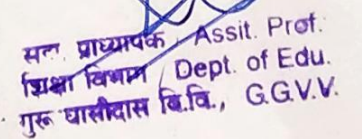 सहा. प्राध्यापक / Assit. Prof.
शिक्षा विभाग / Dept. of Edu.
गुरू घासीदास वि.वि., G.G.V.V.